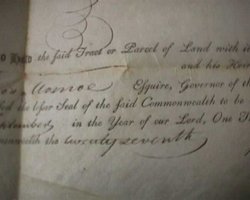 to Hold the said Tract or Parcel of Land with i
and his Heir
Monroe Esquire, Governor of th
the Your Seal of the said Commonwealth to be
in the Year of our Lord, One T
monwealth the twenty seventh